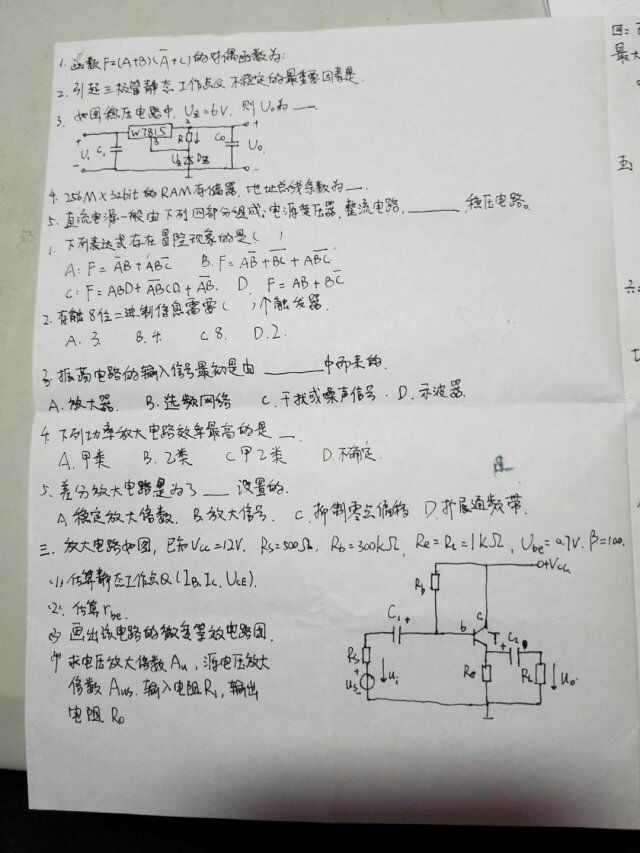 1. 函数F=(A+B)(Ā+C)的对偶函数为:
2. 引起三极管静态工作点Q不稳定的最重要因素是
3. 如图稳压电路中, Uz=6V, 则Uo为__.
W7815
3
+ + 
Ui C1 R Co Uo
Uz Dz
- -
4. 256M×32bit的RAM存储器, 地址总线条数为__.
5. 直流电源一般由下列四部分组成: 电源变压器, 整流电路, ____, 稳压电路。
1. 下列表达式存在冒险现象的是( )
A: F=A̅B+ABC̅ B. F=AB̅+BC̅+ABC̅
C: F=ABD+A̅BCD+A̅B. D. F=AB+BC̅
2. 存触8位二进制信息需要( )个触发器.
A. 3. B. 4. C 8. D. 2.
3. 振荡电路的输入信号最初是由____中而来的.
A. 放大器. B. 选频网络 C. 干扰或噪声信号. D. 示波器.
4. 下列功率放大电路效率最高的是__.
A. 甲类 B. 乙类 C 甲乙类 D. 不确定.
5. 差分放大电路是为了__设置的.
A 稳定放大倍数. B. 放大信号. C. 抑制零点偏移 D. 扩展通频带.
三. 放大电路如图, 已知Vcc=12V. Rs=500Ω, Rb=300kΩ, Re=RL=1kΩ, Ube=0.7V. β=100.
(1) 估算静态工作点Q(IB, Ic, UCE).
(2). 估算rbe.
(3) 画出该电路的微变等效电路图.
(4) 求电压放大倍数Au, 源电压放大
倍数Aus. 输入电阻Ri, 输出
电阻Ro
+Vcc
Rb
C1 + b c T + C2
Rs Ui Re RL Uo
Us